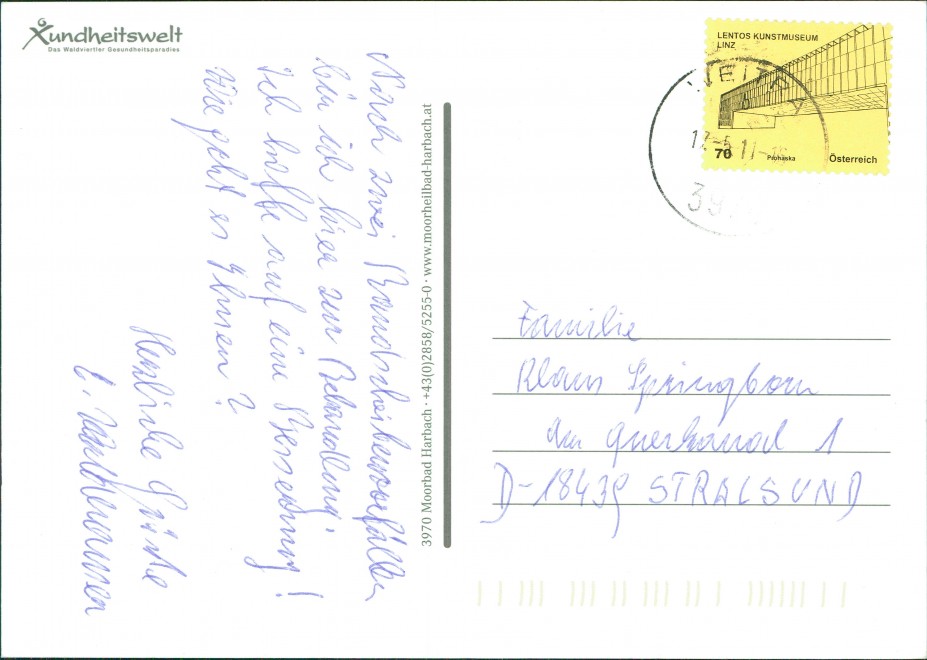 Xundheitswelt
Das Waldviertler Gesundheitsparadies
Nach zwei Bandscheibenvorfällen
bin ich hier zur Behandlung.
Ich hoffe auf eine Besserung!
Wie geht es Ihnen?
Herzliche Grüße
3970 Moorbad Harbach · +43(0)2858/5255-0 · www.moorheilbad-harbach.at
LENTOS KUNSTMUSEUM
LINZ
70
Prohaska
Österreich
Familie
Klaus Springborn
Am Querkanal 1
D-18439 STRALSUND